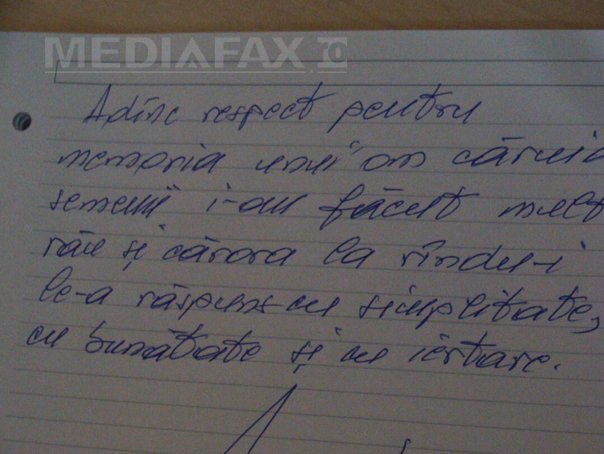 MEDIAFAX.RO
Adînc respect pentru
memoria unui om căruia
semenii i-au făcut mult
rău și cărora la rîndu-i
le-a răspuns cu simplitate,
cu bunătate și cu iertare.